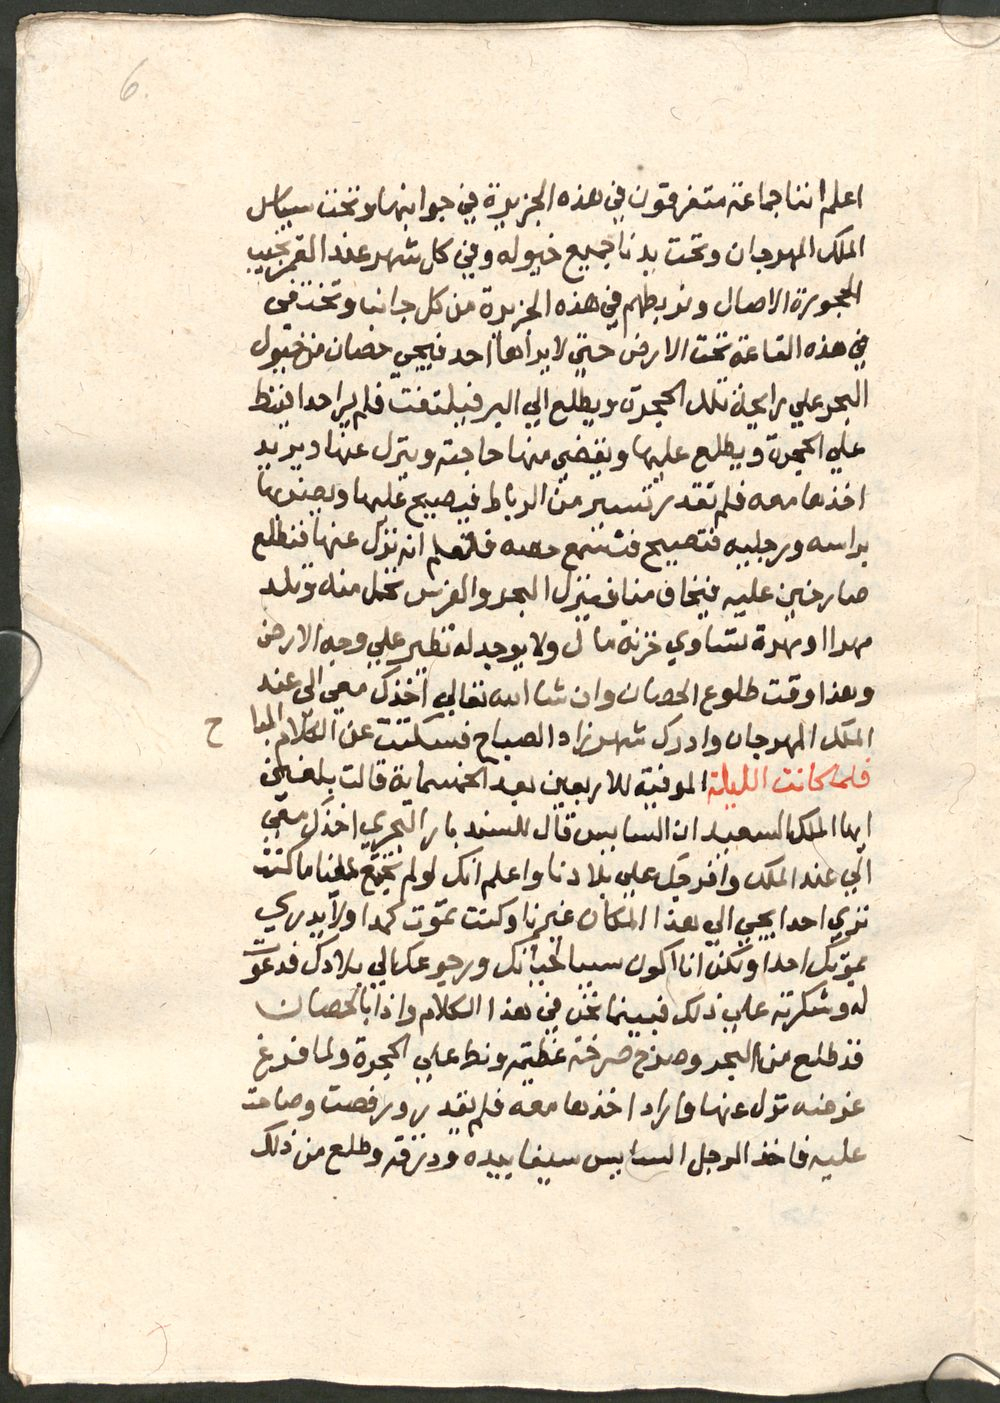 6.
اعلم اننا جماعة متفرقون في هذه الجزيرة في جوانبها ونحن سياس
الملك المهرجان وتحت يدنا جميع خيوله وفي كل شهر عند القمر نجيب
الحجورة الاصال ونربطهم في هذه الجزيرة من كل جانب ونختفى
في هذه القاعة تحت الارض حتي لا يراها احد فيجي حصان من خيول
البحر علي رايحة تلك الحجرة ويطلع الي البر فيلتفت فلم يرا احدا فينط
علي الحجرة ويطلع عليها ويقضي منها حاجته وينزل عنها ويريد
اخذها معه فلم تقدر تسير من الرباط فيصيح عليها ويضربها
براسه ورجليه فتصيح فنسمع حسه فنعلم انه نزل عنها فنطلع
صارخين عليه فيخاف منا فينزل البحر والفرس تحمل منه وتلد
مهرا او مهرة تساوي خزنة مال ولا يوجد له نظير علي وجه الارض
وهذا وقت طلوع الحصان وان شا الله تعالي اخذك معي الى عند
الملك المهرجان وادرك شهرزاد الصباح فسكتت عن الكلام المبا ح
فلما كانت الليلة الموفية للاربعين بعد الخمسماية قالت بلغني
ايها الملك السعيد ان السايس قال للسندباد البحري اخذك معي
الي عند الملك وافرجك علي بلادنا واعلم انك لولم تجتمع علينا ما كنت
تري احدا يجي الي هذا المكان غيرنا وكنت تموت كمدا ولا يدري
بموتك احدا ولكن انا اكون سببا لحياتك ورجوعك الي بلادك فدعوت
له وشكرته علي ذلك فبينما نحن في هذا الكلام واذا بالحصان
قد طلع من البحر وصرخ صرخة عظيمة ونط علي الحجرة ولما فرغ
غرضه نزل عنها واراد اخذها معه فلم يقدر ورفصت وصاحت
عليه فاخذ الرجل السايس سيفا بيده ودرقة وطلع من ذلك